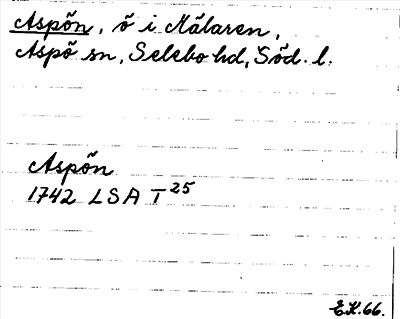 Aspön, ö i Mälaren,
Aspö sn, Selebo hd, Söd. l.
Aspön
1742 LSA T 25
E.K. 66.